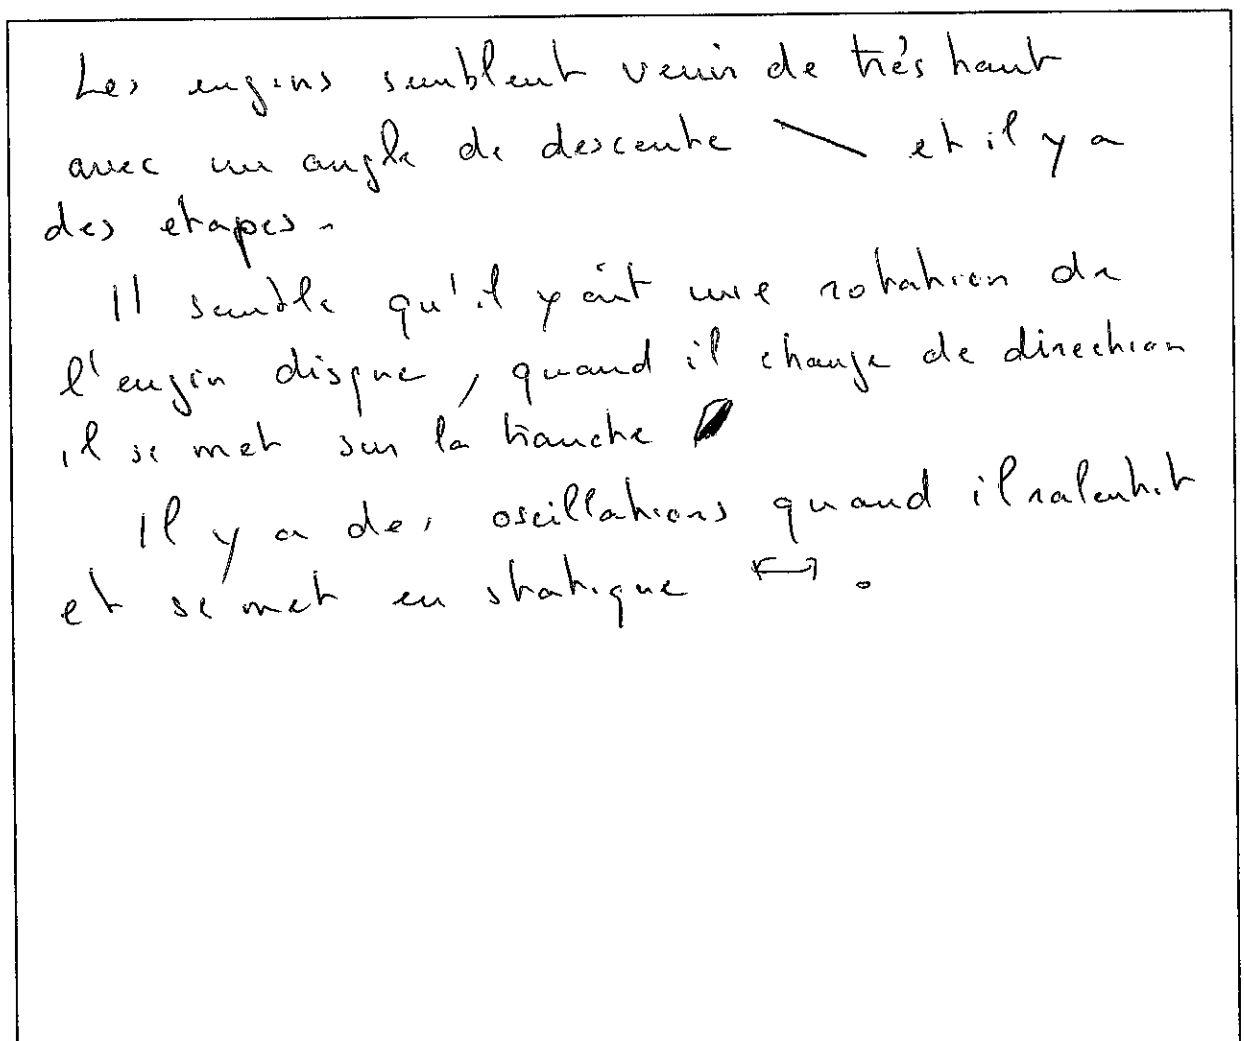 Les engins semblent venir de très haut
avec un angle de descente et il y a
des etapes.
Il semble qu'il y ait une rotation de
l'engin disque, quand il change de direction
il se met sur la tranche
Il y a des oscillations quand il ralentit
et se met en statique ↔.